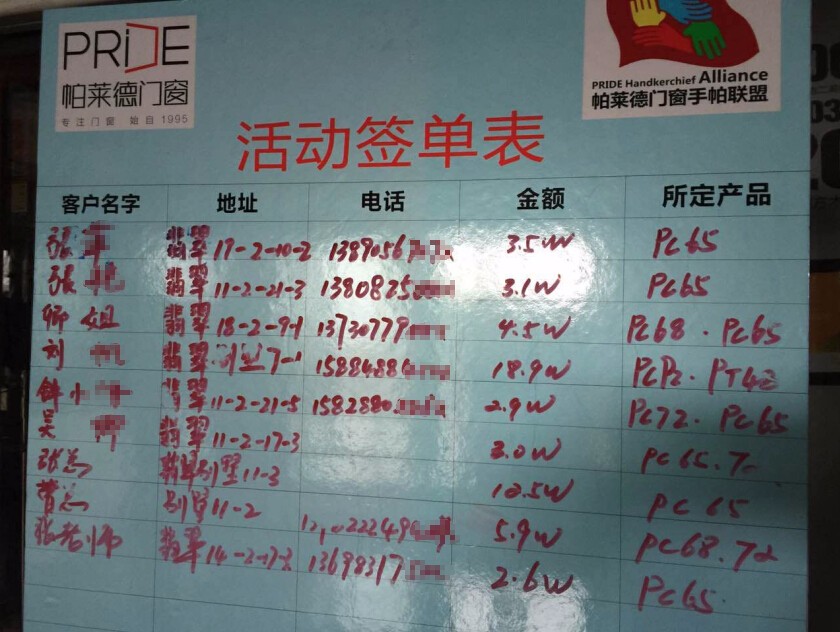 PRIDE
帕莱德门窗
专注门窗 始自1995
PRIDE Handkerchief Alliance
帕莱德门窗手帕联盟
活动签单表
客户名字 地址 电话 金额 所定产品
张 翡翠17-2-10-2 1389056 3.5W PC65
张 翡翠11-2-21-3 1380825 3.1W PC65
师姐 翡翠18-2-9-1 13730779 4.5W PC68.PC65
刘 翡翠 7-1 15884884 18.9W
钟小 翡翠11-2-21-5 1582880 2.9W PC72.PC65
吴 翡翠11-2-17-3 3.0W PC65.7
张总 翡翠别墅11-3 12.5W PC65
曹总 别墅11-2 222490 5.9W PC68.72
张老师 翡翠14-2-17-2 13698317 2.6W PC65